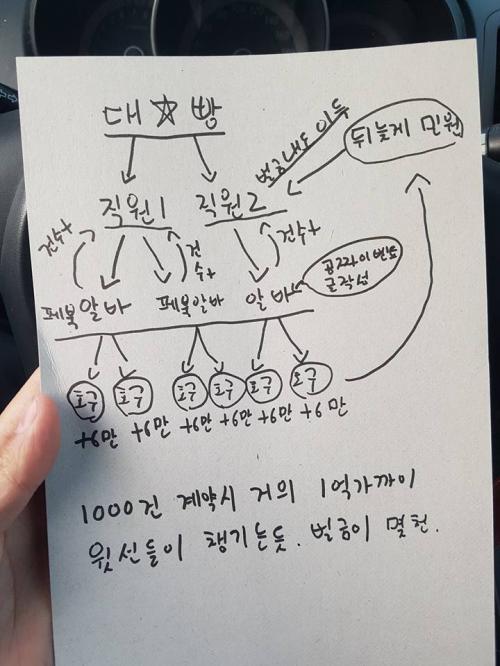 대☆빵
벌금내도 이득
뒤늦게 민원
직원1 직원2
건수+ 건수+ 건수+
페북알바 페북알바 알바
공짜라이벤트
글작성
호구 호구 호구 호구 호구 호구
+6만 +6만 +6만 +6만 +6만 +6만
1000건 계약시 거의 1억가까이
윗선들이 챙기는듯. 벌금이 몇천.